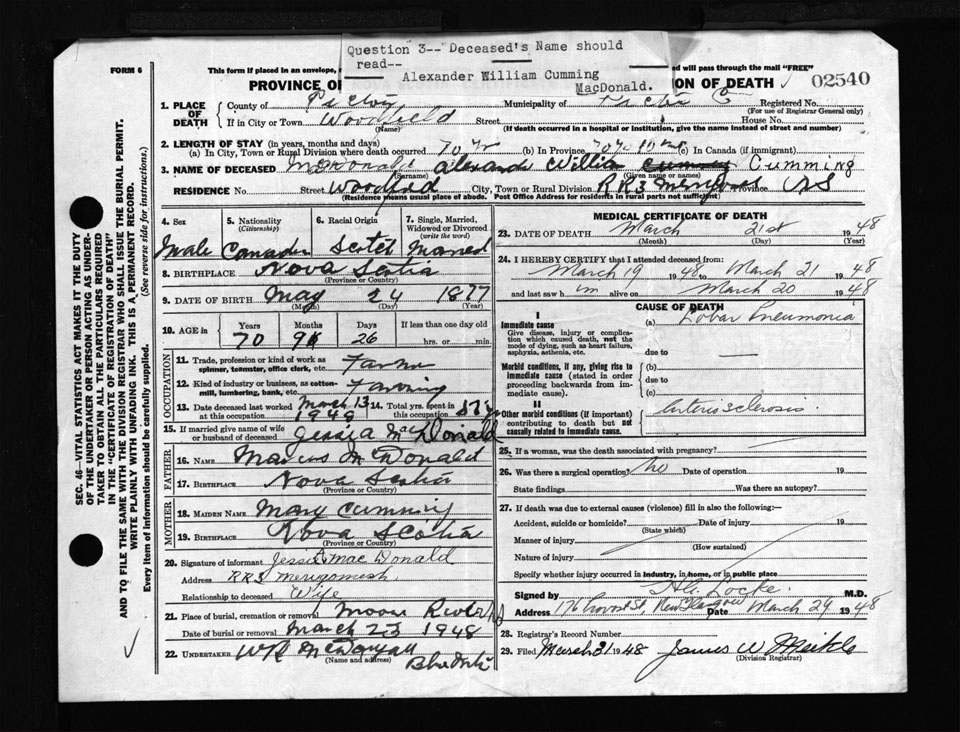 Question 3-- Deceased's Name should
read--
Alexander William Cumming
MacDonald.
FORM 6
This form if placed in an envelope,
ed will pass through the mail "FREE"
PROVINCE O
ON OF DEATH
02540
1. PLACE OF DEATH
County of Pictou
Municipality of Pictou
Registered No.
(For use of Registrar General only)
If in City or Town Woodfield Street House No.
(Name)
(If death occurred in a hospital or institution, give the name instead of street and number)
2. LENGTH OF STAY (in years, months and days)
(a) In City, Town or Rural Division where death occurred 70 yr (b) In Province 70 yr 10 mo (c) In Canada (if immigrant)
3. NAME OF DECEASED McDonald Alexander William Cumming Cumming
(Surname) (Given name or names)
RESIDENCE No. Street Woodfield City, Town or Rural Division RR3 Merigomish Province NS
(Residence means usual place of abode. Post Office Address for residents in rural parts not sufficient)
4. Sex
5. Nationality (Citizenship)
6. Racial Origin
7. Single, Married, Widowed or Divorced (write the word)
Male Canadian Scotch Married
8. BIRTHPLACE Nova Scotia
(Province or Country)
9. DATE OF BIRTH May 24 1877
(Month) (Day) (Year)
10. AGE in Years Months Days If less than one day old
70 9 26 hrs. or min.
OCCUPATION
11. Trade, profession or kind of work as spinner, teamster, office clerk, etc. Farmer
12. Kind of industry or business, as cotton-mill, lumbering, bank, etc. Farming
13. Date deceased last worked at this occupation March 13
14. Total yrs. spent in this occupation 57 yr
15. If married give name of wife or husband of deceased Jessie A MacDonald
FATHER
16. NAME Marcus McDonald
17. BIRTHPLACE Nova Scotia
(Province or Country)
MOTHER
18. MAIDEN NAME Mary Cumming
19. BIRTHPLACE Nova Scotia
(Province or Country)
20. Signature of informant Jessie A Mac Donald
Address RR3 Merigomish
Relationship to deceased Wife
21. Place of burial, cremation or removal Moose River NS
Date of burial or removal March 23 1948
22. UNDERTAKER
(Name and address)
MEDICAL CERTIFICATE OF DEATH
23. DATE OF DEATH March 21st 1948
(Month) (Day) (Year)
24. I HEREBY CERTIFY that I attended deceased from:
March 19 1948 to March 21 1948
and last saw him alive on March 20 1948
CAUSE OF DEATH
I
Immediate cause
Give disease, injury or complication which caused death, not the mode of dying, such as heart failure, asphyxia, asthenia, etc.
(a) Lobar Pneumonia
due to
Morbid conditions, if any, giving rise to immediate cause (stated in order proceeding backwards from immediate cause).
(b)
due to
(c)
II
Other morbid conditions (if important) contributing to death but not causally related to immediate cause.
Arterio sclerosis
25. If a woman, was the death associated with pregnancy?
26. Was there a surgical operation? no Date of operation 19
State findings Was there an autopsy?
27. If death was due to external causes (violence) fill in also the following:—
Accident, suicide or homicide? Date of injury 19
(State which)
Manner of injury
(How sustained)
Nature of injury
Specify whether injury occurred in industry, in home, or in public place
Signed by H.G. Locke. M.D.
Address 176 Provost St. New Glasgow Date March 29 1948
28. Registrar's Record Number
29. Filed March 31 1948 James W Meikle
(Division Registrar)
SEC. 46—VITAL STATISTICS ACT MAKES IT THE DUTY
OF THE UNDERTAKER OR PERSON ACTING AS UNDER-
TAKER TO OBTAIN ALL THE PARTICULARS REQUIRED
IN THE "CERTIFICATE OF REGISTRATION OF DEATH"
AND TO FILE THE SAME WITH THE DIVISION REGISTRAR WHO SHALL ISSUE THE BURIAL PERMIT.
WRITE PLAINLY WITH UNFADING INK. THIS IS A PERMANENT RECORD.
Every item of information should be carefully supplied. (See reverse side for instructions.)